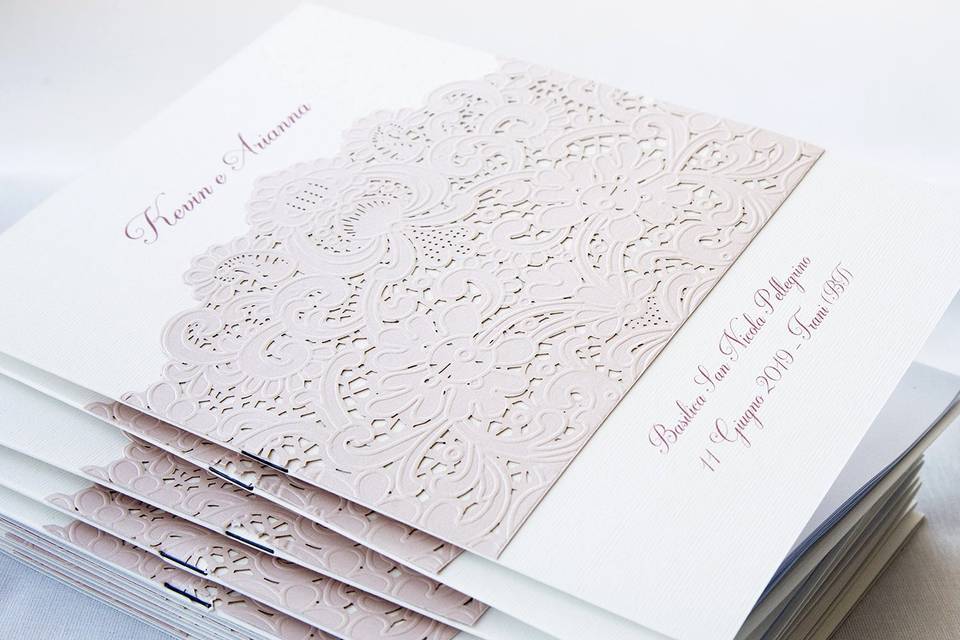 Kevin e Arianna
Basilica San Nicola Pellegrino
11 Giugno 2019 - Trani (BT)